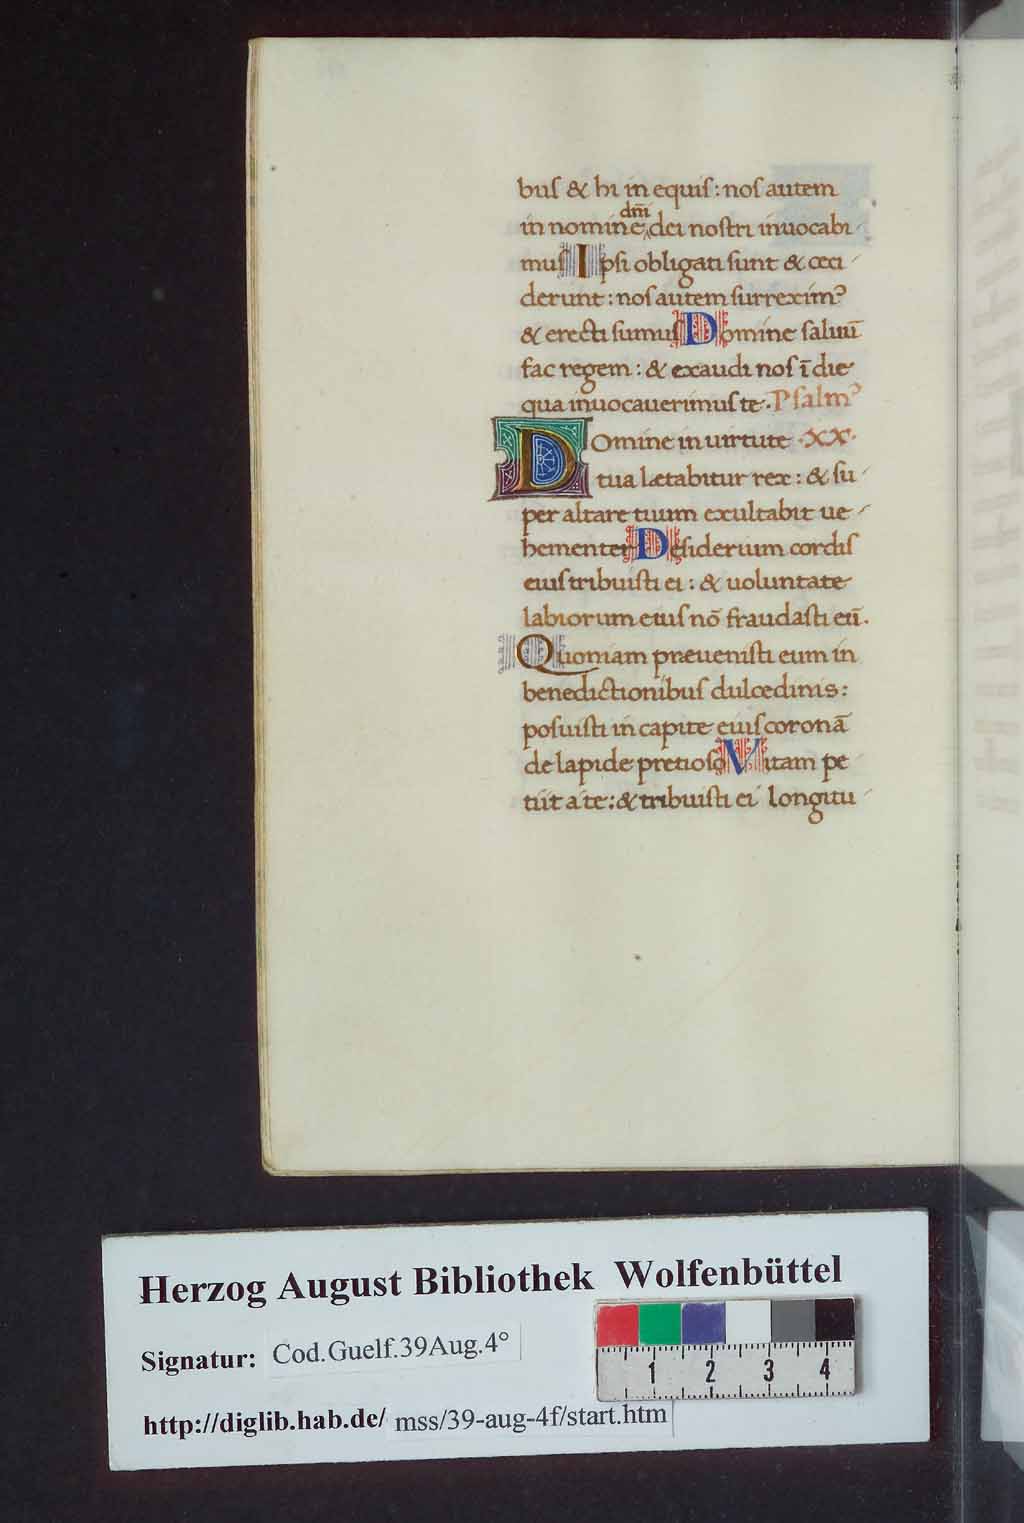 buſ & hi in equiſ: noſ autem
in nomine dn̄i dei noſtri inuocabi
muſ Ipſi obligati ſunt & ceci
derunt: noſ autem ſurreximꝰ
& erecti ſumuſ Domine ſaluū
fac regem: & exaudi noſ ī die
qua inuocauerimuſ te. Pſalmꝰ
Domine in uirtute .XX.
tua lætabitur rex: & ſu
per altare tuum exultabit ue
hementer Deſiderium cordiſ
eiuſ tribuiſti ei: & uoluntate
labiorum eiuſ nō fraudaſti eū.
Quoniam præueniſti eum in
benedictionibuſ dulcedinis:
poſuiſti in capite eiuſ coronā
de lapide pretioſo Vitam pe
tiit a te: & tribuiſti ei longitu
Herzog August Bibliothek Wolfenbüttel
Signatur: Cod.Guelf.39Aug.4°
http://diglib.hab.de/ mss/39-aug-4f/start.htm
1 2 3 4